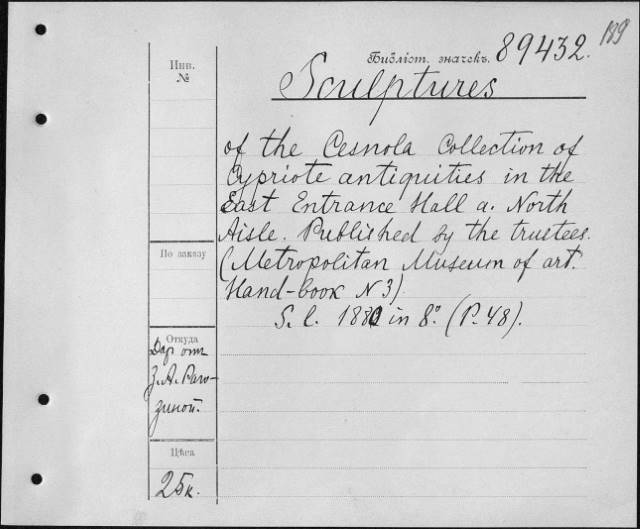 189
Библіот. значекъ. 89432.
Инв.
№
Sculptures
of the Cesnola Collection of
Cypriote antiquities in the
East Entrance Hall a. North
Aisle. Published by the trustees.
(Metropolitan Museum of art.
Hand-book N 3)
S. l. 188 in 8º. (P. 48).
По заказу
Откуда
Дар от
З. А. Раго-
зиной.
Цѣна
25к.